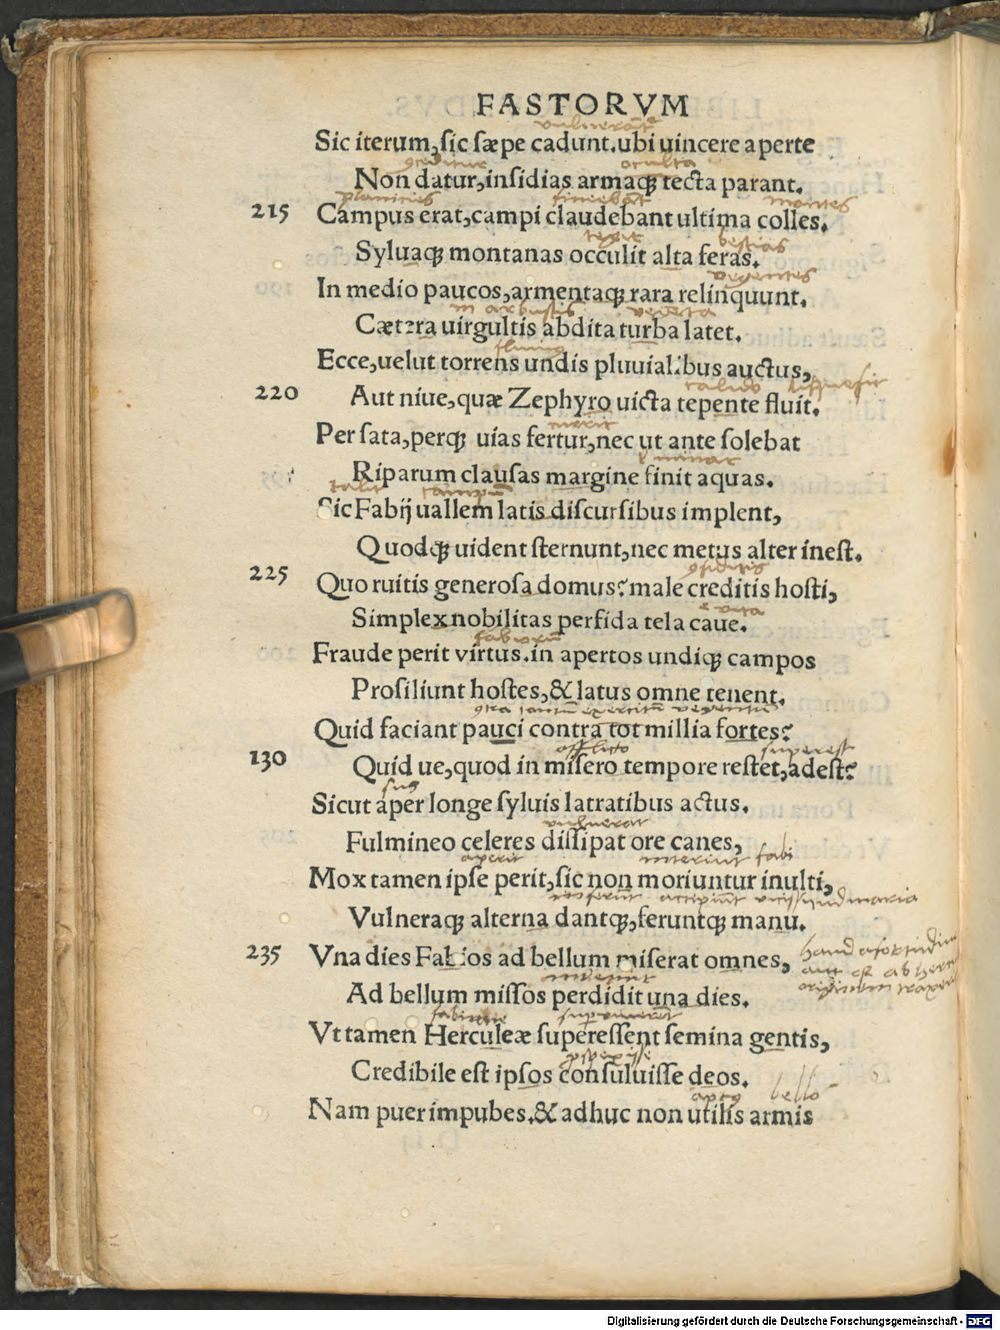 FASTORVM
vulnerant
Sic iterum, sic sæpe cadunt. ubi uincere aperte
creditur occulta
Non datur, insidias armaqꝫ tecta parant.
planities finiebant montes
215 Campus erat, campi claudebant ultima colles,
tegit bestias
Syluaqꝫ montanas occulit alta feras.
In medio paucos, armentaqꝫ rara relinquunt.
in arbustis
Cætera uirgultis abdita turba latet.
Ecce, uelut torrens undis pluuialibus auctus,
calido liquefit
220 Aut niue, quæ Zephyro uicta tepente fluit.
Per sata, perqꝫ uias fertur, nec ut ante solebat
Riparum clausas margine finit aquas.
Sic Fabij uallem latis discursibus implent,
Quodqꝫ uident sternunt, nec metus alter inest.
225 Quo ruitis generosa domus? male creditis hosti,
Simplex nobilitas perfida tela caue.
Fraude perit virtus. in apertos undiqꝫ campos
Prosiliunt hostes, & latus omne tenent.
Quid faciant pauci contra tot millia fortes?
afflicto superest
130 Quid ue, quod in misero tempore restet, adest?
sus
Sicut aper longe syluis latratibus actus.
vulnerat
Fulmineo celeres dissipat ore canes,
interiunt fabi
Mox tamen ipse perit, sic non moriuntur inulti,
Vulneraqꝫ alterna dantqꝫ, feruntqꝫ manu.
235 Vna dies Fabios ad bellum miserat omnes,
Ad bellum missos perdidit una dies.
Vt tamen Herculeæ superessent semina gentis,
Credibile est ipsos consuluisse deos.
bello
Nam puer impubes. & adhuc non utilis armis
Digitalisierung gefördert durch die Deutsche Forschungsgemeinschaft - DFG